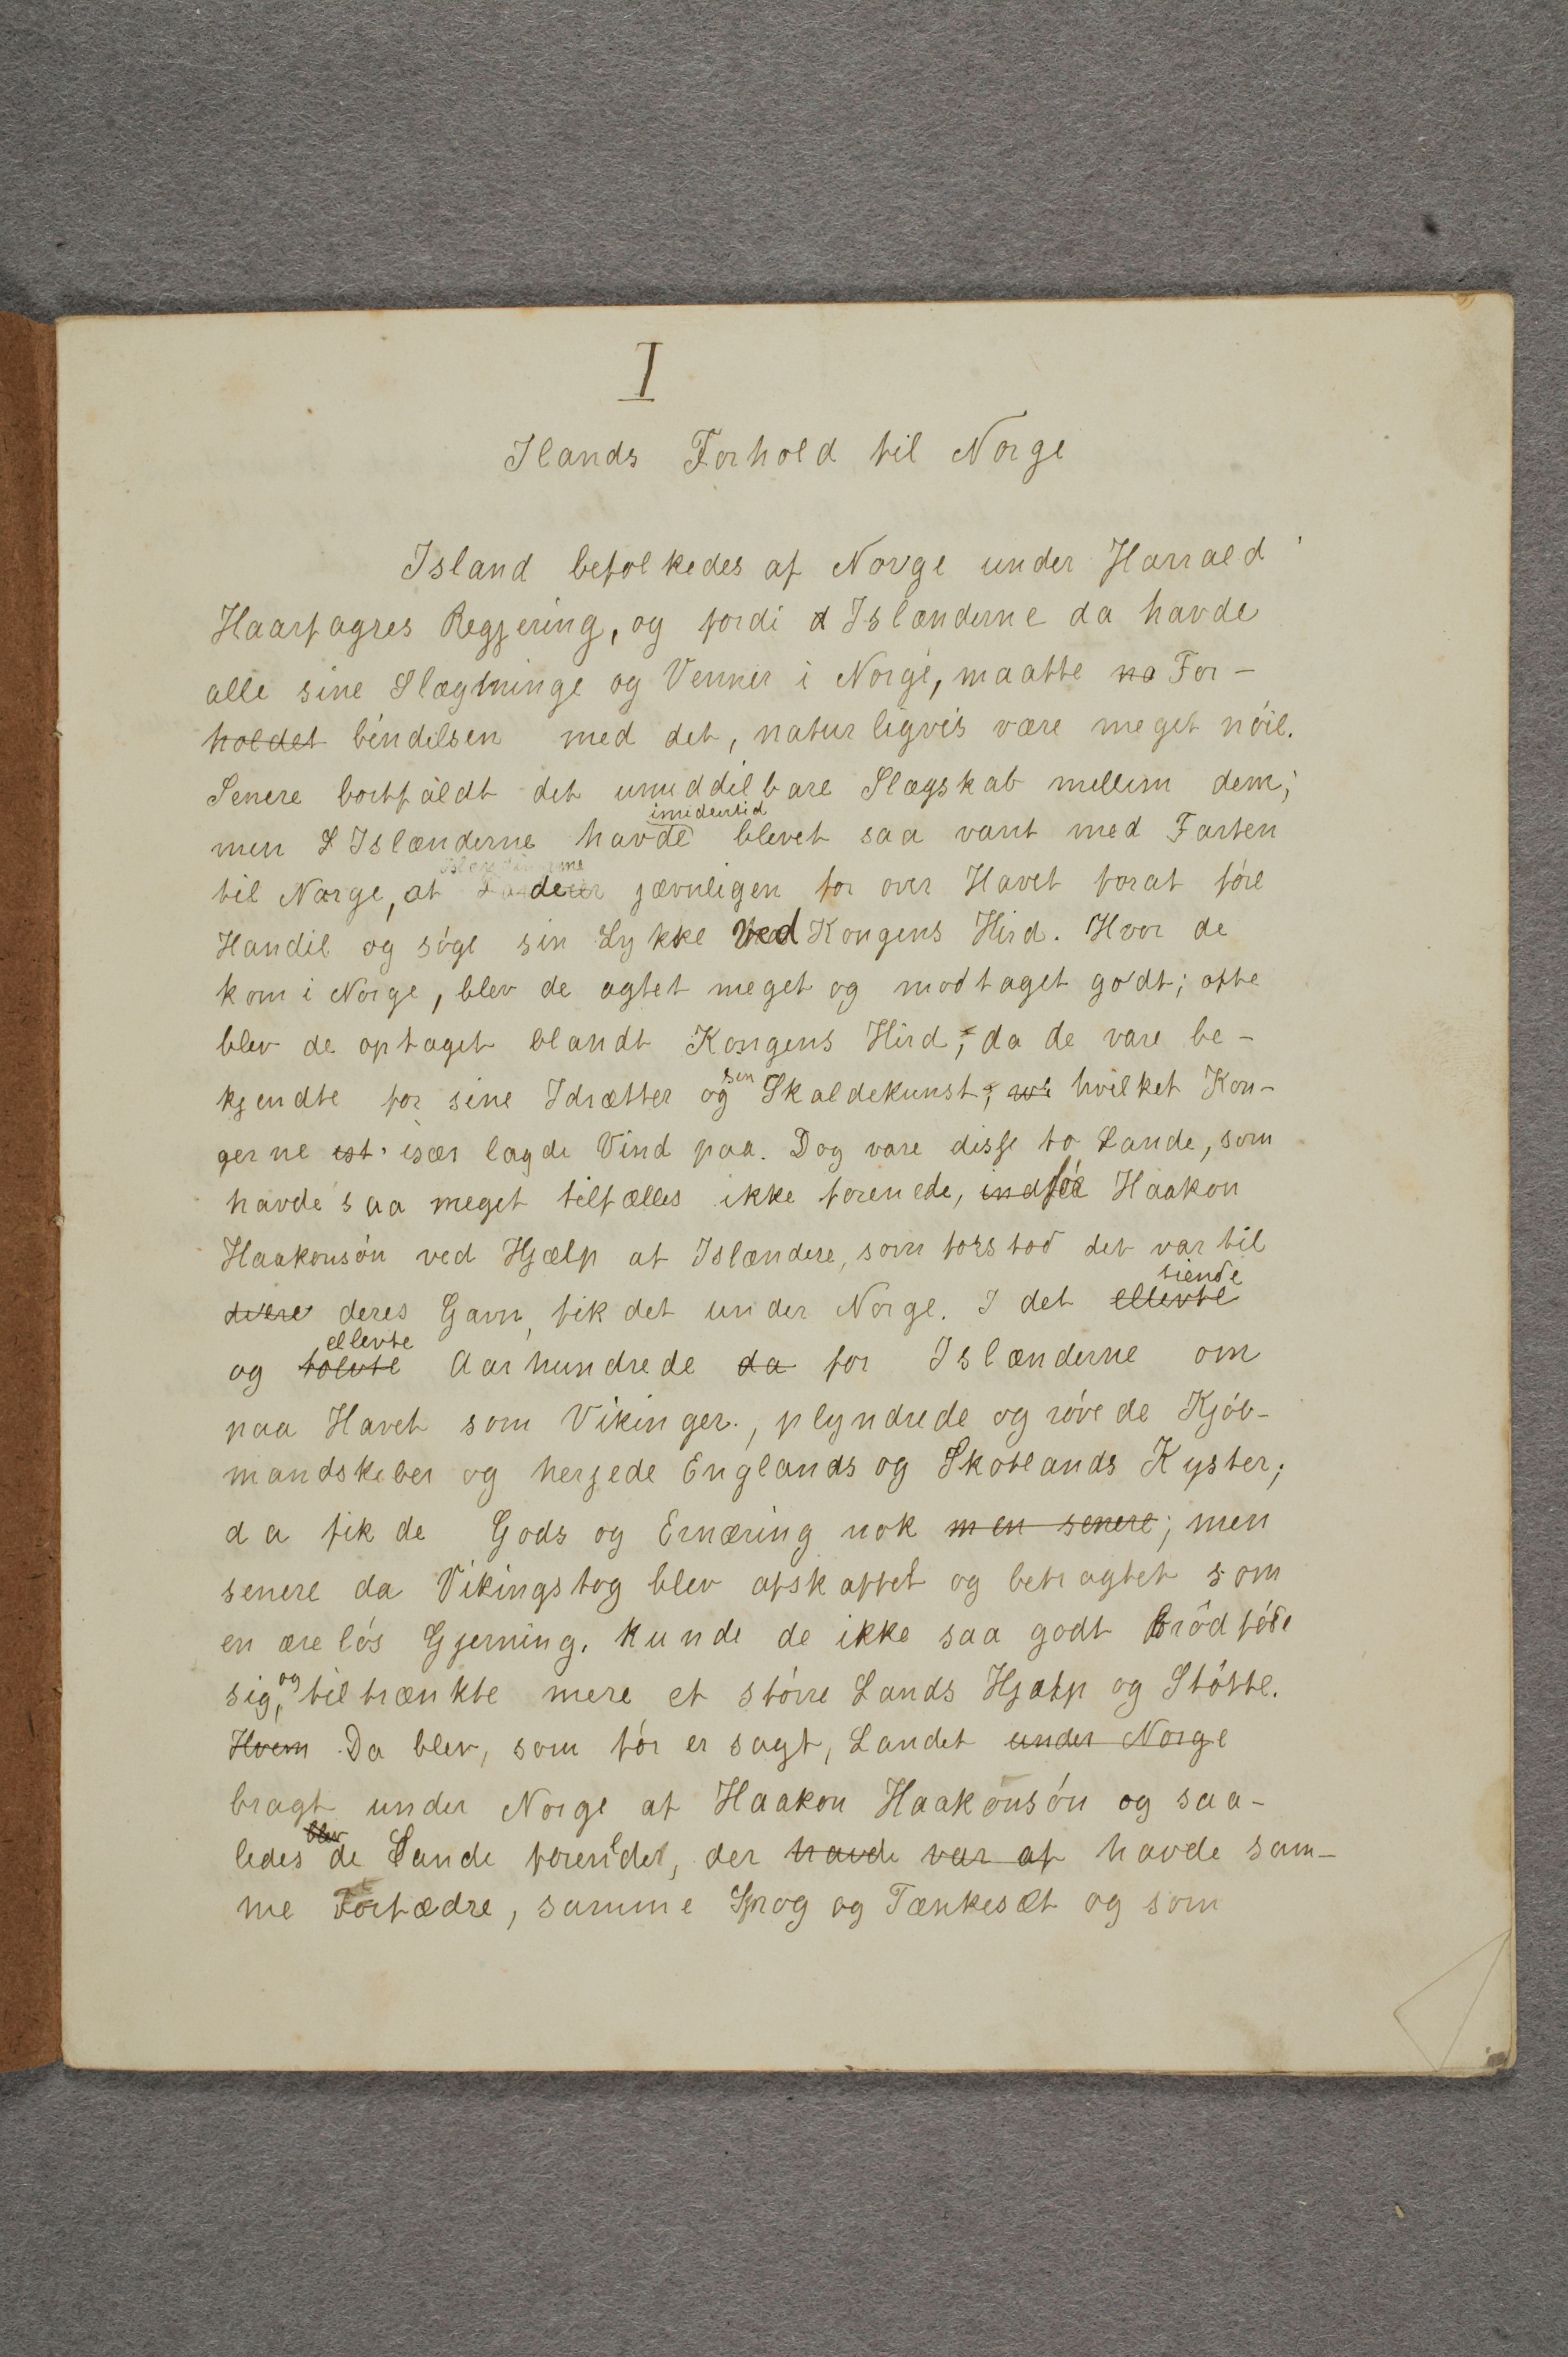 I
Ilands Forhold til Norge
Island befolkedes af Norge under Harrald
Haarfagres Regjering, og fordi d Islænderne da havde
alle sine Slægtninge og Venner i Norge, maatte na For-
holdet bindelsen med det, naturligvis være meget nöie.
Senere bortfaldt det umiddelbare Slægskab mellem dem;
imidertid
men I Islænderne havde blevet saa vant med Farten
Islænderne
til Norge, at jævnligen for over Havet forat före
Handel og söge sin Lykke ved Kongens Hird. Hvor de
kom i Norge, blev de agtet meget og modtaget godt; ofte
blev de optaget blandt Kongens Hird, da de vare be-
sin
kjendte for sine Idrætter og Skaldekunst, hvilket Kon-
gerne ist især lagde Vind paa. Dog vare disse to Lande, som
havde saa meget tilfælles ikke forenede, indför Haakon
Haakonsön ved Hjælp af Islændere, som forstod det var til
tiende
deres Gavn, fik det under Norge. I det ellevte
ellevte
og tolvte Aarhundrede da for Islænderne om
paa Havet som Vikinger, plyndrede og rövede Kjöb-
mandskiber og herjede Englands og Skotlands Kyster;
da fik de Gods og Ernæring nok men senere; men
senere da Vikingstog blev afskaffet og betragtet som
en ærelös Gjerning, kunde de ikke saa godt brödföde
og
sig, tiltrænkte mere et större Lands Hjælp og Stötte.
Hvem Da blev, som för er sagt, Landet under Norge
bragt under Norge af Haakon Haakonsön og saa-
blev
ledes de Lande forendet, der havde var af havde sam-
me Forfædre, samme Sprog og Tænkesæt og som